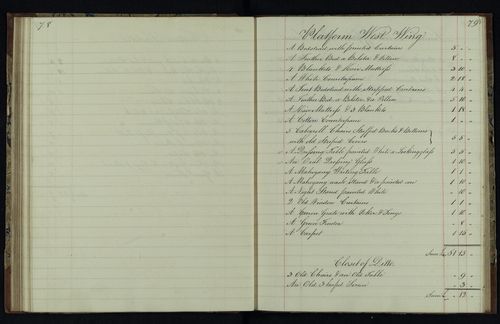 78
79
Platform West Wing
A Bedstead with printed Curtains 5 " -
A Feather Bed a Bolster & Pillow 8 " -
4 Blankets & Hair Mattress 3 10 -
A White Counterpane 2 18 -
A Tent Bedstead with Stripped Curtains 4 4 -
A Feather Bed a Bolster & a Pillow 5 10 -
A Hair Mattress & 3 Blankets 1 18 -
A Cotton Counterpane 1 - -
5 Cabarell Chairs Stuffed Backs & Bottoms
with old Striped Covers 5 5 -
A Dressing Table painted White & Looking glass 5 5 -
An Oval Dressing Glass 1 10 -
A Mahogany Writing Table 1 1 -
A Mahogany wash Stand & a painted one 1 10 -
A Night Stand painted White - 10 -
2 Old Window Curtains 1 1 -
A Green Grate with Poker & Tongs 1 10 -
A Green Fender - 8 -
A Carpet 1 15 -
Sum £ 51 15 -
Closet of Ditto
3 Old Chairs & an Old Table - 9 -
An Old 3 leafed Screen - 3 -
Sum £ - 12 -